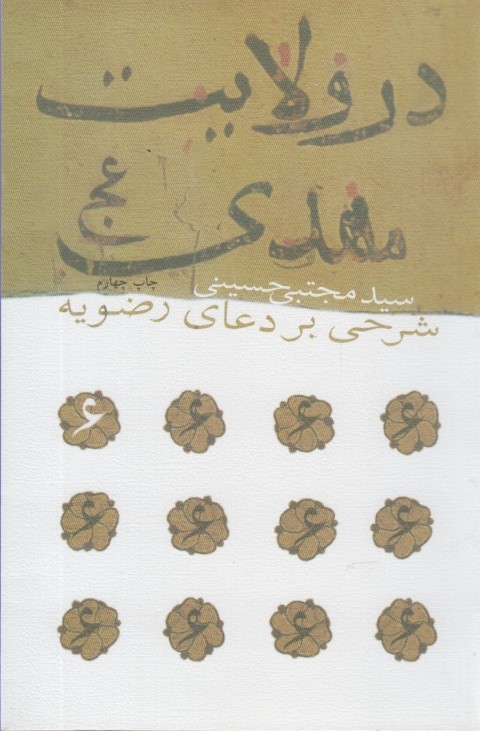 در ولایت
مهدی عج
سید مجتبی حسینی
چاپ چهارم
شرحی بر دعای رضویه
۶ ۶ ۶ ۶
۶ ۶ ۶ ۶
۶ ۶ ۶ ۶